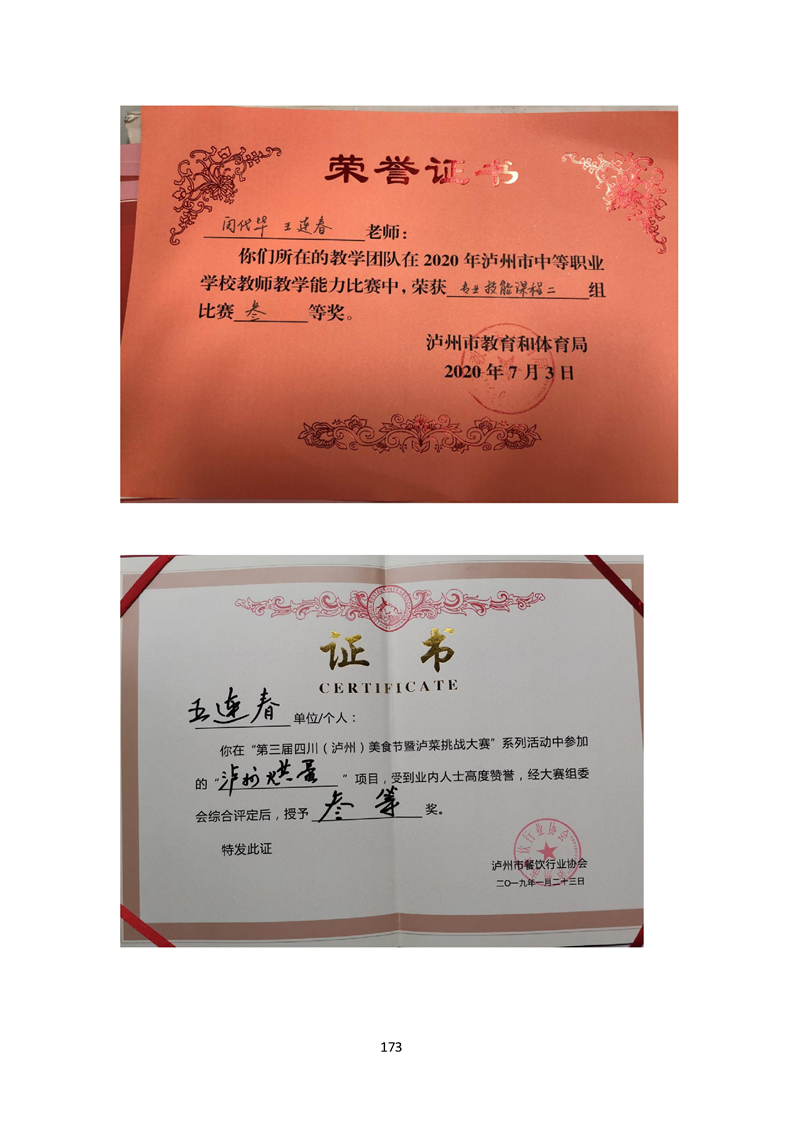 荣誉证书
闵代毕 王连春 老师：
你们所在的教学团队在 2020 年泸州市中等职业
学校教师教学能力比赛中，荣获 专业技能课程二 组
比赛 叁 等奖。
泸州市教育和体育局
2020 年 7 月 3 日
证 书
CERTIFICATE
王连春 单位/个人：
你在“第三届四川（泸州）美食节暨泸菜挑战大赛”系列活动中参加
的“泸州烘蛋”项目，受到业内人士高度赞誉，经大赛组委
会综合评定后，授予 叁等 奖。
特发此证
泸州市餐饮行业协会
二〇一九年一月二十三日
173